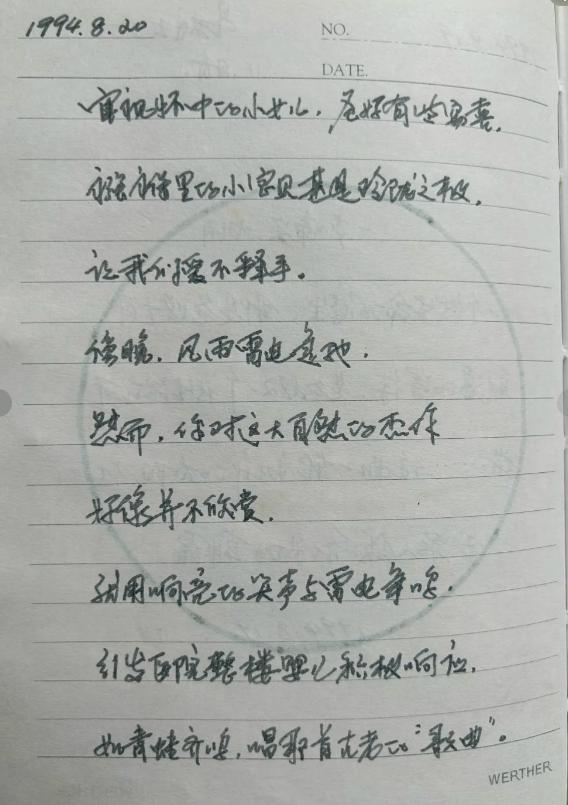 1994.8.20
NO.
DATE.
审视怀中的小女儿，居然有些窃喜，
襁褓里的小宝贝甚是玲珑之极，
让我们爱不释手。
傍晚，风雨雷电交加，
然而，你对这大自然的杰作
好像并不欣赏，
就用响亮的哭声与雷电争鸣，
引发医院整楼婴儿积极响应，
如青蛙齐鸣，唱那首古老的“歌曲”。
WERTHER